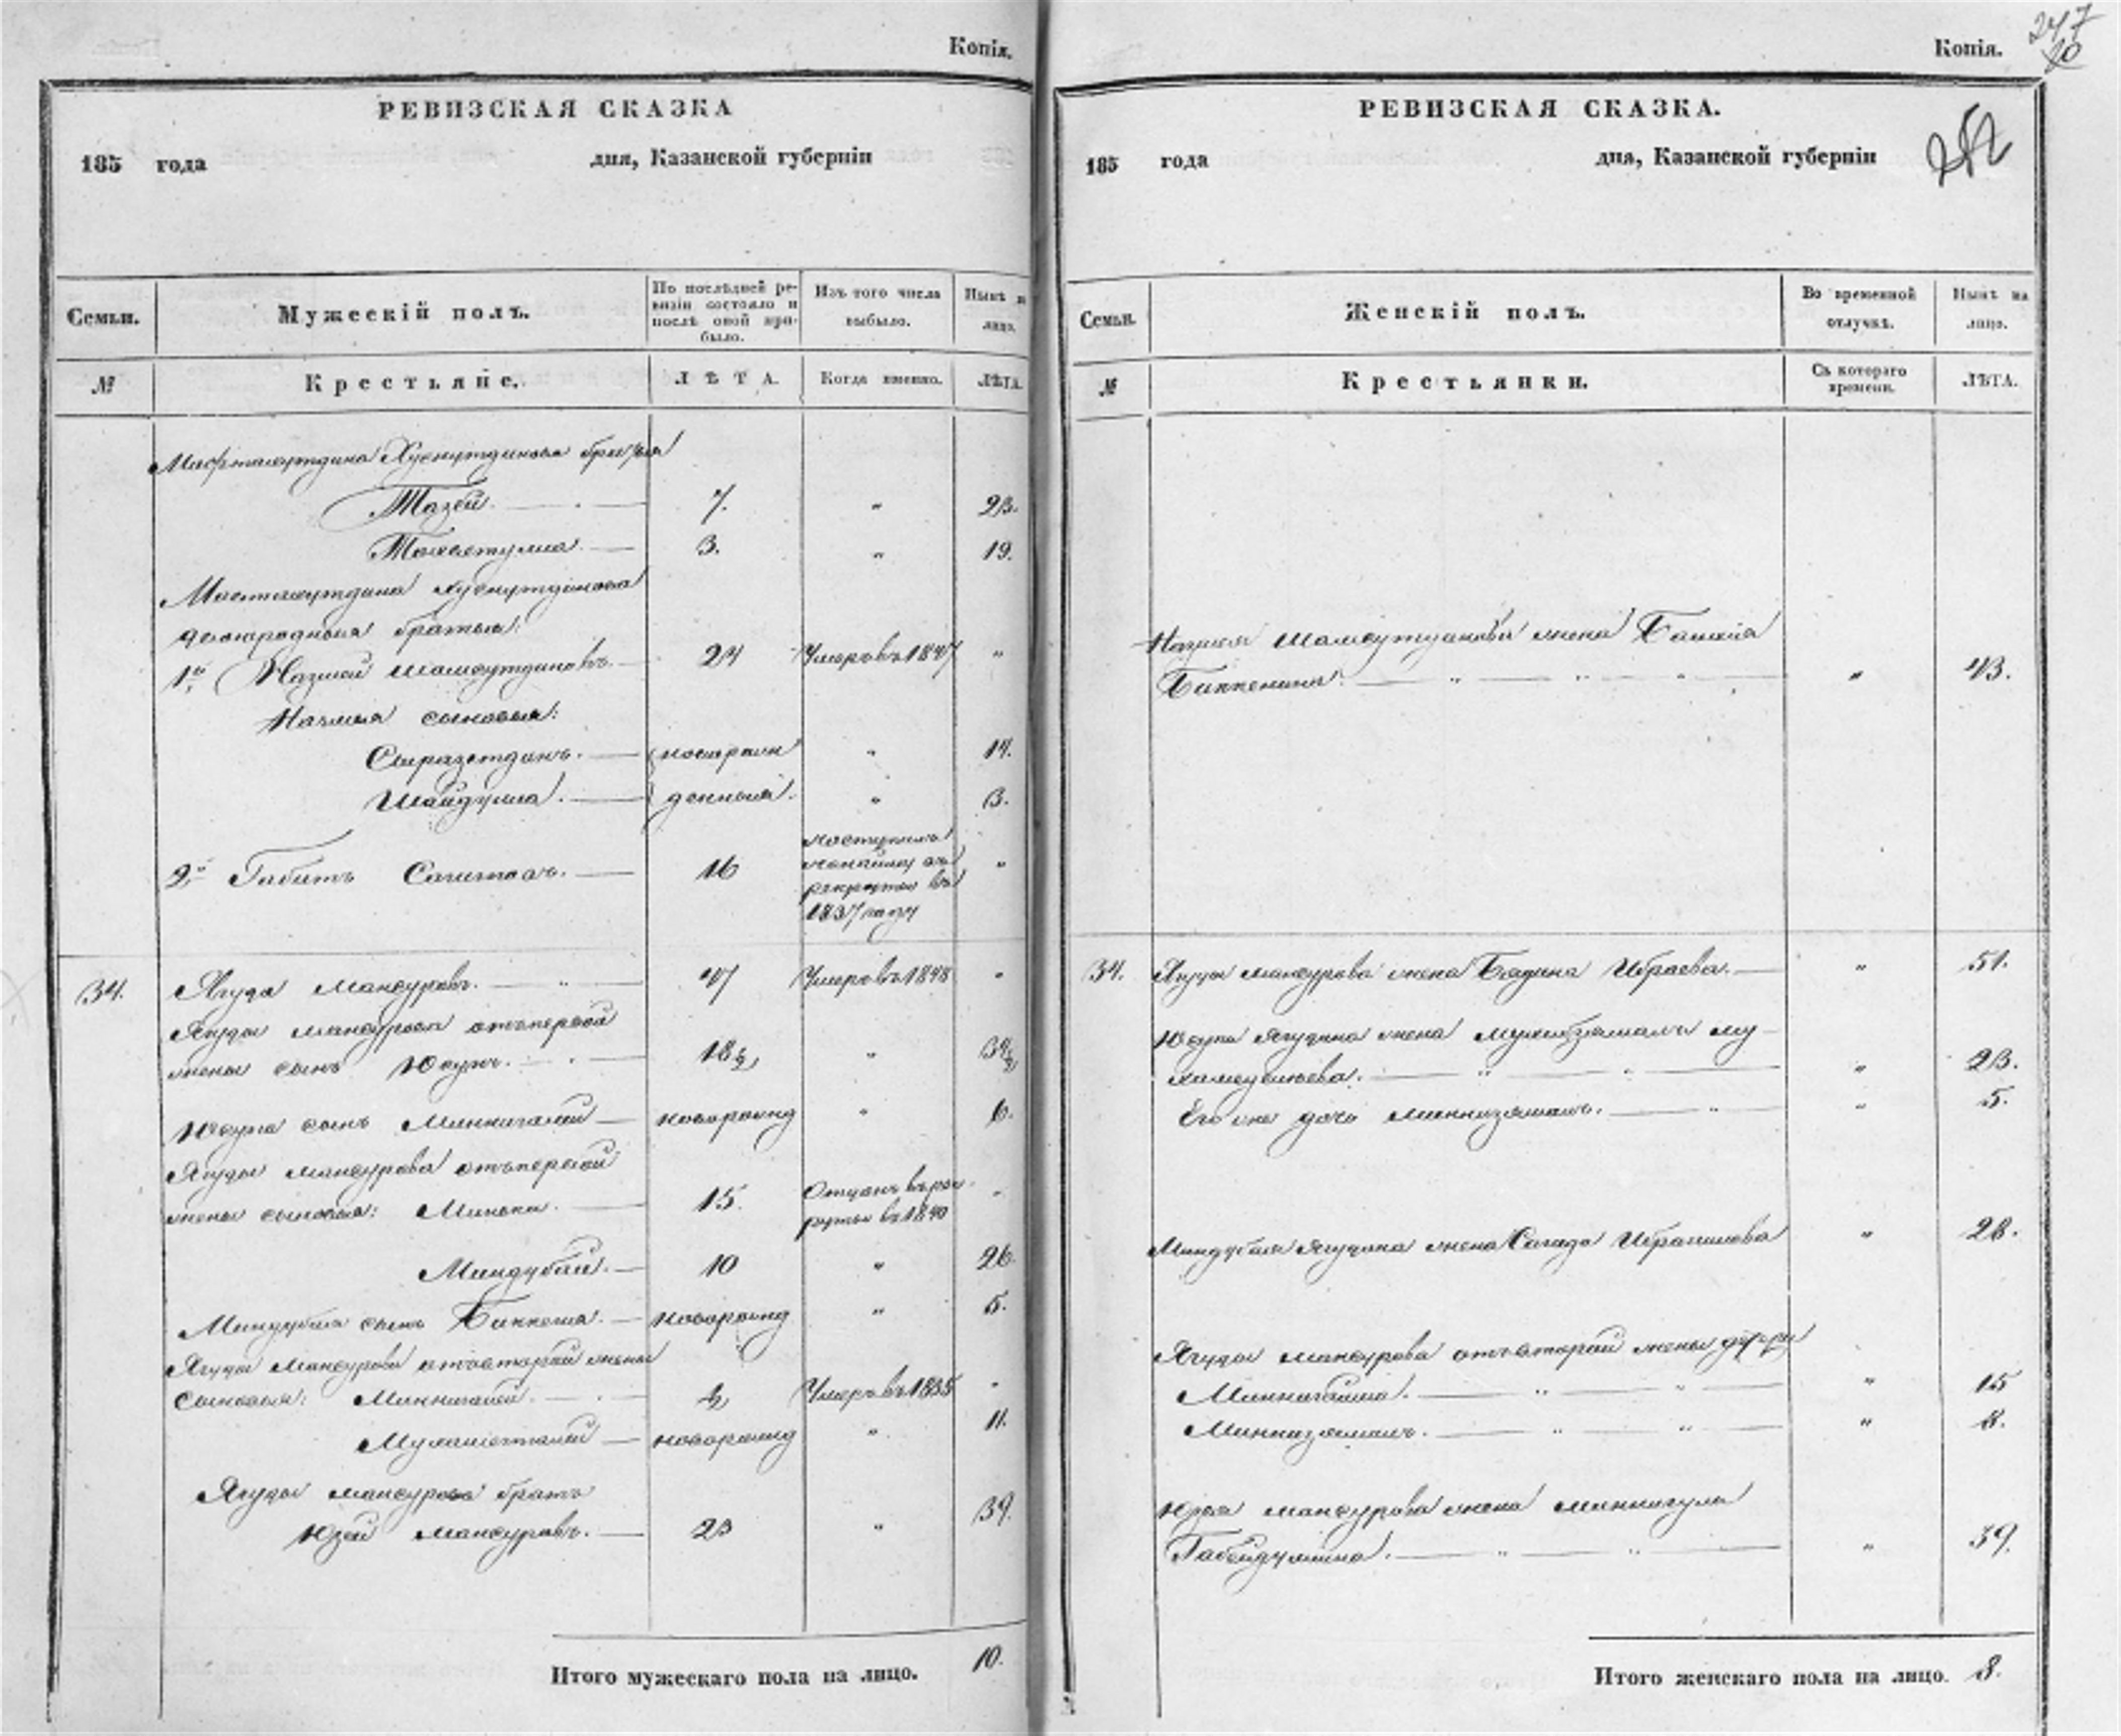 Копія.
РЕВИЗСКАЯ СКАЗКА
185 года дня, Казанской губерніи
Семьи.
Мужескій полъ.
По послѣдней ре-
визіи состояло и
послѣ оной при-
было.
Изъ того числа
выбыло.
Нынѣ на
лицо.
№
Крестьяне.
ЛѢТА.
Когда именно.
ЛѢТА.
Хуснутдинова братья
Тазей. 7. " 23.
3. " 19.
Хуснутдинова
двоюродныя братья:
1й Назмей Шамсутдиновъ. 24 Умеръ въ 1847 "
Назмея сыновья:
Сиразетдинъ. новорож " 14.
Шайдулла. денныя. " 3.
2й Габитъ Сагитовъ. 16
поступилъ
по найму въ
рекруты въ
1837 году
"
34. Ягуда Мансуровъ. 47 Умеръ въ 1848 "
Ягуды Мансурова отъ первой
жены сынъ Юсупъ. 18½ " 34½
Юсупа сынъ Миннигалей новорожд " 6.
Ягуды Мансурова отъ первой
жены сыновья: 15. Отданъ въ рек
руты въ 1840 "
Миндубай. 10 " 26.
Миндубая сынъ Биккеня. новорожд " 5.
Ягуды Мансурова отъ второй жены
сыновья: Миннигалей. ½ Умеръ въ 1835 "
Мухаметгалей новорожд " 11.
Ягуды Мансурова братъ
Юзей Мансуровъ. 23 " 39.
Итого мужескаго пола на лицо. 10.
Копія.
247
РЕВИЗСКАЯ СКАЗКА.
185 года дня, Казанской губерніи
Семьи.
Женскій полъ.
Во временной
отлучкѣ.
Нынѣ на
лицо.
№
Крестьянки.
Съ котораго
времени.
ЛѢТА.
Назмея Шамсутдинова жена
Биккенина. " 43.
34. Ягуды Мансурова жена Бадина Ибраева. " 51.
Юсупа Ягудина жена Мухибзямалъ Му
" 23.
Его же дочь Миннизямалъ. " 5.
Миндубая Ягудина жена Сагида Ибрагимова " 28.
Ягуды Мансурова отъ второй жены дочери
" 15
Миннизямалъ. " 8.
Юзея Мансурова жена Миннигуль
Габейдуллина. " 39.
Итого женскаго пола на лицо. 8.